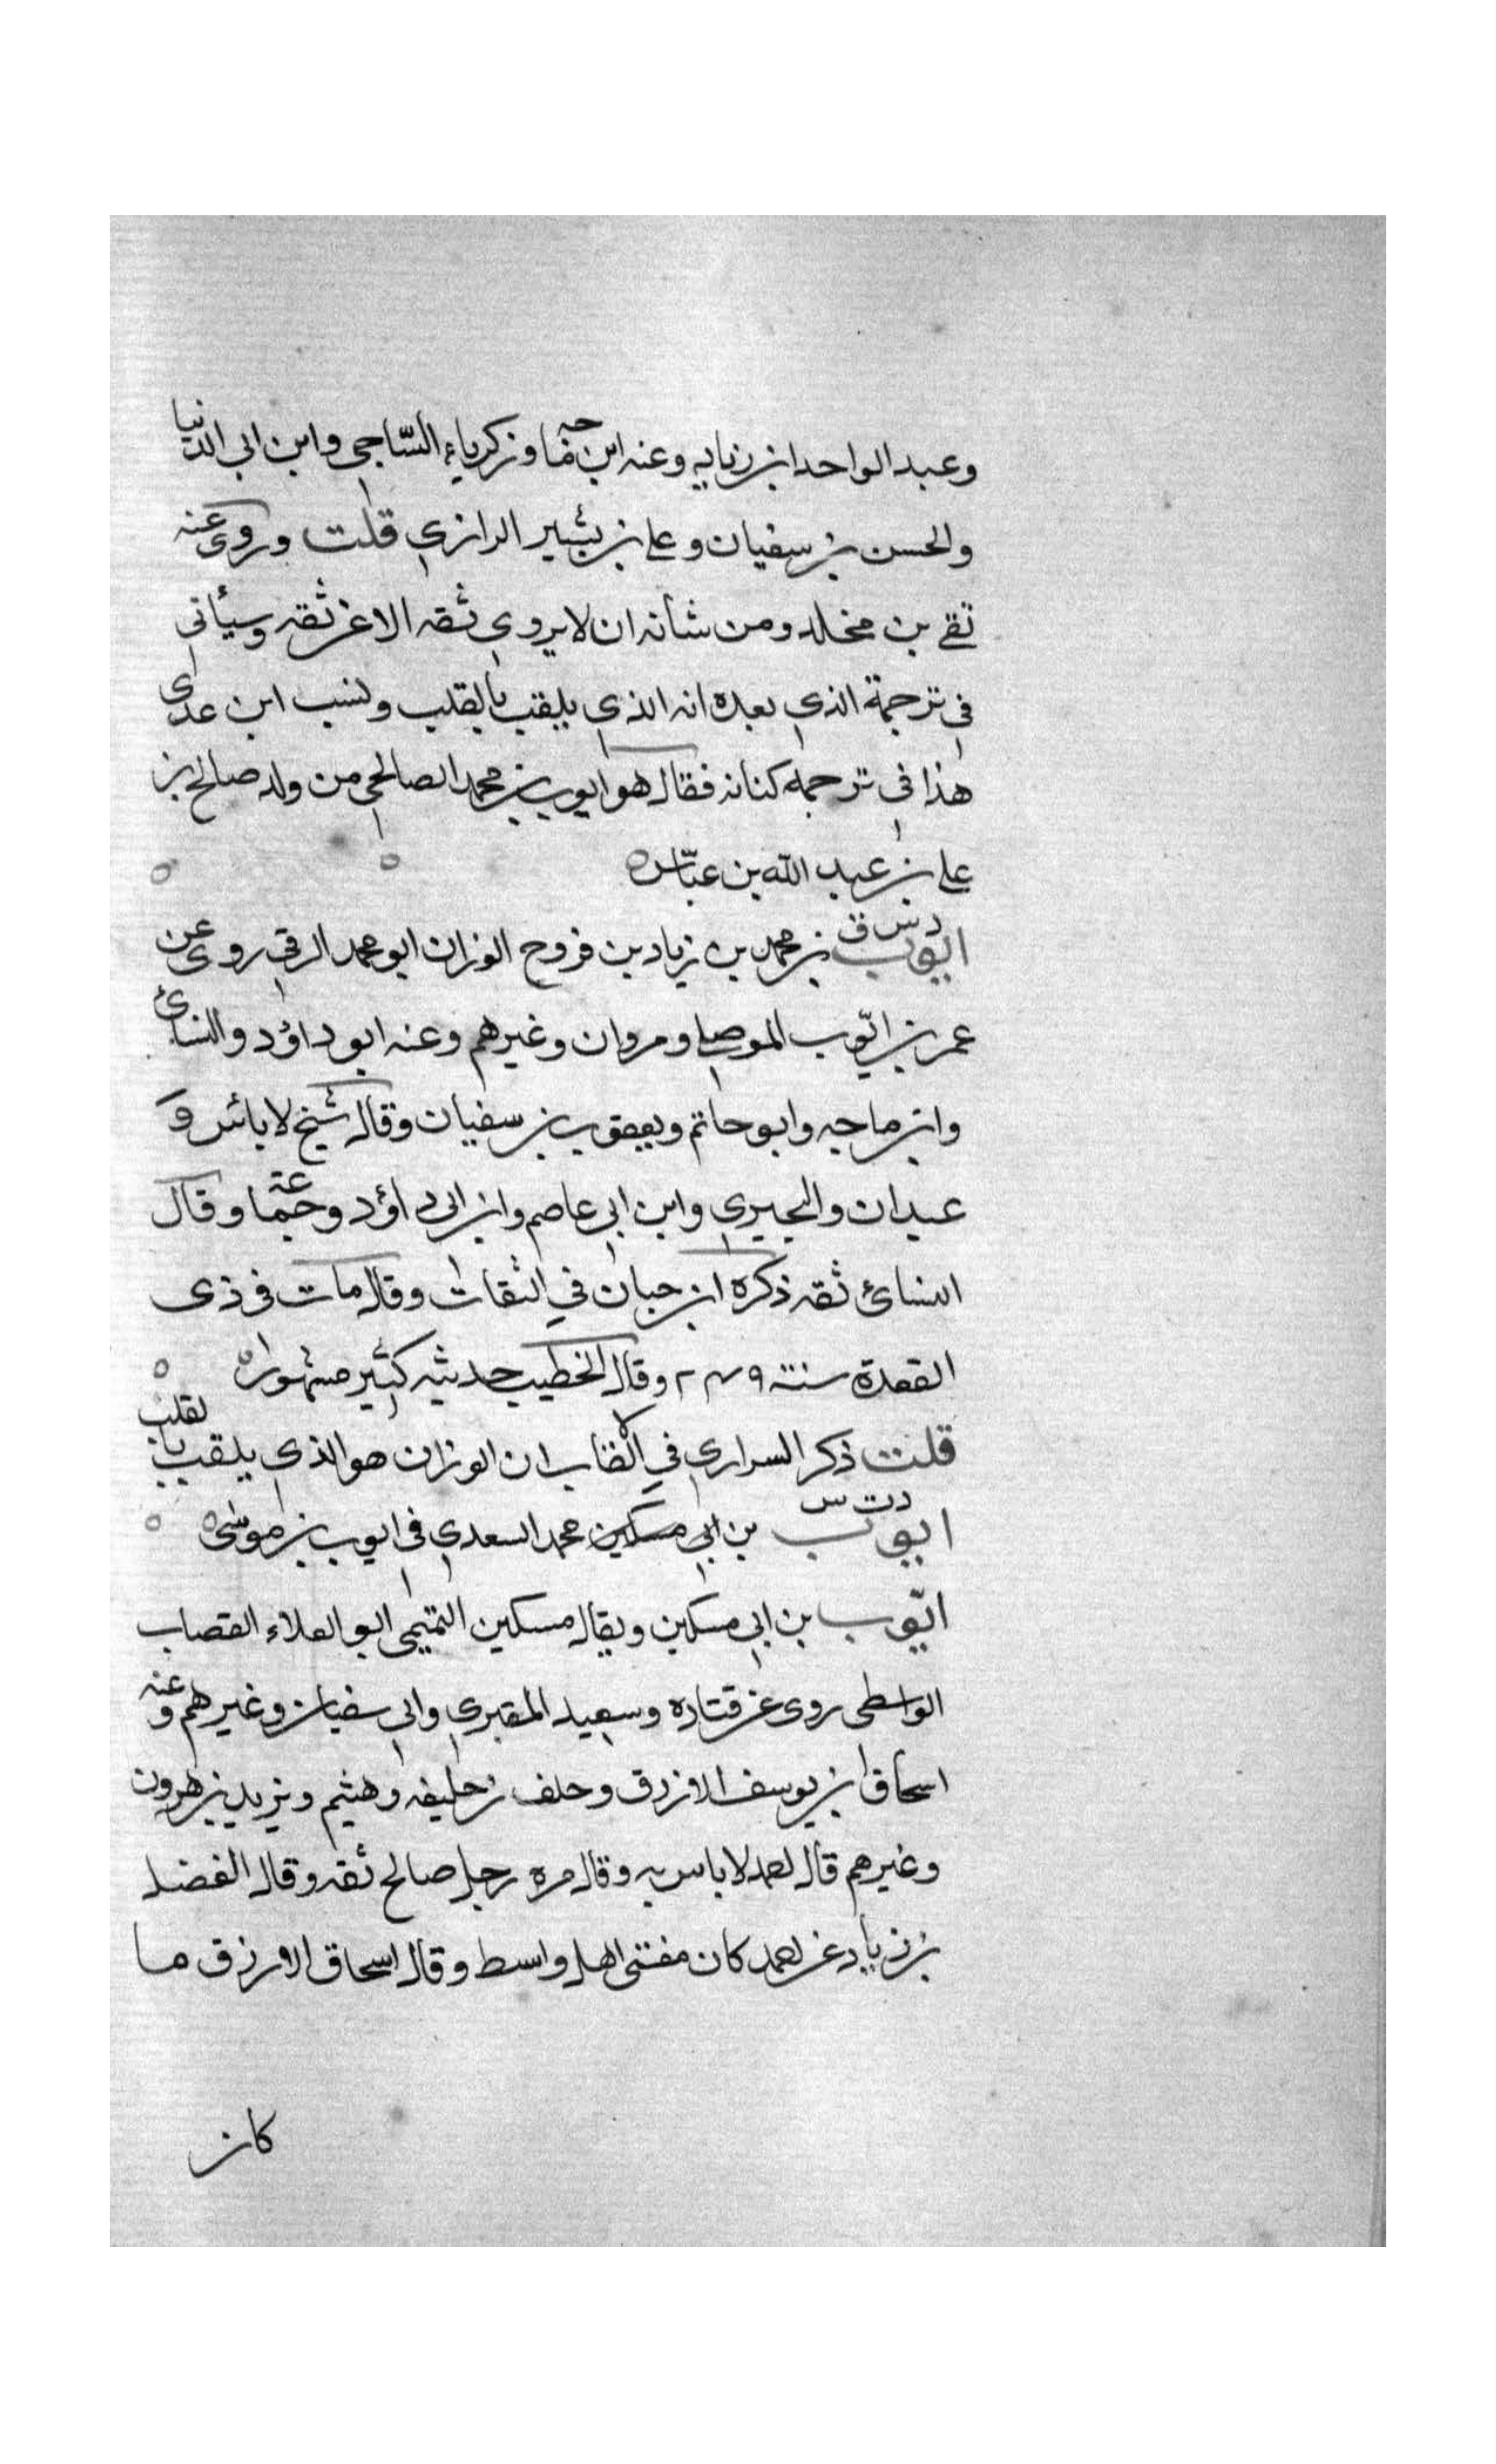 وعبد الواحد ابن زياد وعنه ابن ماجه وزكرياء الساجي وابن ابي الدنيا
والحسن بن سفيان وعلي بن بشير الرازي قلت وروى عنه
تقي بن مخلد ومن شأنه ان لا يروي ثقه الا عن ثقه وسيأتي
في ترجمة الذي بعده انه الذي يلقب بالقلب ونسب ابن عدي
هذا في ترجمه كنانه فقال هو ايوب بن محمد الصالحي من ولد صالح بن
علي بن عبد الله بن عباس ه
د س ق
ايوب بن محمد بن زياد بن فروح الوزان ابو محمد الرقي روى عن
عمر بن ايّوب الموصلي ومروان وغيرهم وعنه ابو داؤد والنسائ
وابن ماجه وابو حاتم ويعقوب بن سفيان وقال شيخ لا بائس و
عبدان والبجيري وابن ابي عاصم وابن ابي داؤد وجماعة وقال
النسائ ثقه ذكره ابن حبان في الثقات وقال مات في ذي
القعدة سنة ٢٤٩ وقال الخطيب حديثه كثير مشهوراه
قلت ذكر السراري في الالقاب ان الوزان هو الذي يلقب بالقلب
د ت س
ايوب بن ابي مسكين محمد السعدي في ايوب بن موسى ه
ايّوب بن ابي مسكين ويقال مسكين التميمي ابو العلاء القصاب
الواسطي روى عن قتاده وسعيد المقبري وابي سفيان وغيرهم وعنه
اسحاق ابن يوسف الازرق وخلف بن خليفه وهشيم ويزيد بن هرون
وغيرهم قال احمد لا باس به وقال مره رجل صالح ثقه وقال الفضل
بن زياد عن احمد كان مفتي اهل واسط وقال اسحاق الارزق ما
كان